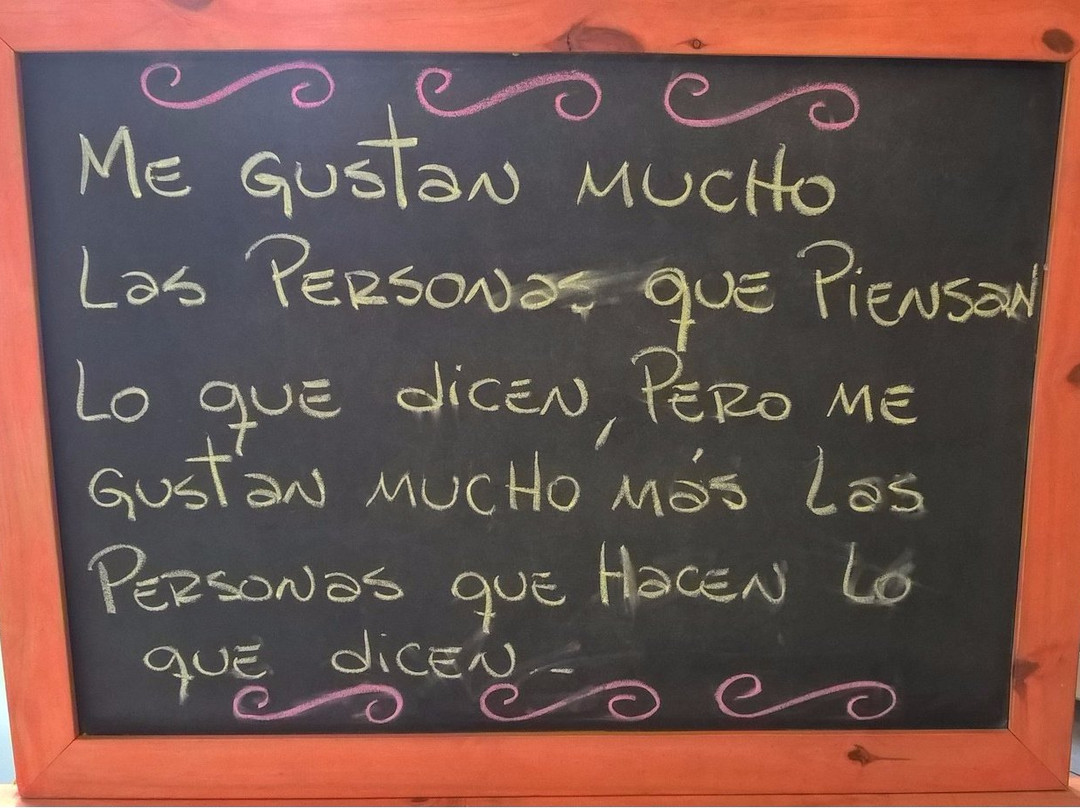 Me gustan mucho
Las Personas que Piensan
Lo que dicen, Pero me
gustan mucho más Las
Personas que Hacen Lo
que dicen -